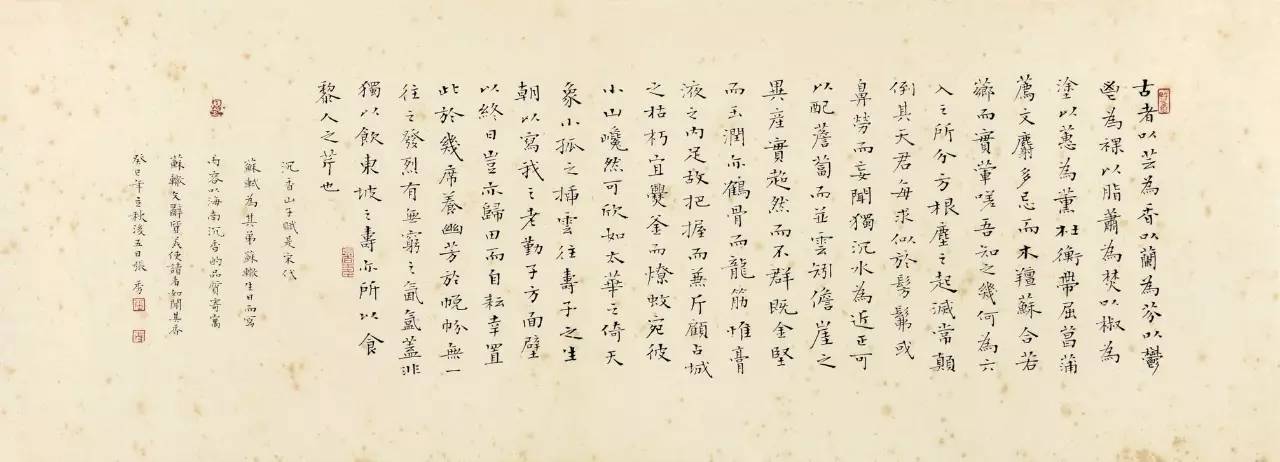 古者以芸為香以蘭為芬以鬱
鬯為祼以脂蕭為焚以椒為
塗以蕙為薰杜衡帶屈菖蒲
薦文麝多忌而本羶蘇合若
薌而實葷嗟吾知之幾何為六
入之所分方根塵之起滅常顛
倒其天君每求似於髣髴或
鼻勞而妄聞獨沉水為近正可
以配薝蔔而並雲矧儋崖之
異產實超然而不群既金堅
而玉潤亦鶴骨而龍筋惟膏
液之內足故把握而兼斤顧占城
之枯朽宜爨釜而燎蚊宛彼
小山巉然可欣如太華之倚天
象小孤之插雲往壽子之生
朝以寫我之老勤子方面壁
以終日豈亦歸田而自耘幸置
此於幾席養幽芳於帨帉無一
往之發烈有無窮之氤氳蓋非
獨以飲東坡之壽亦所以食
黎人之芹也
沉香山子賦是宋代
蘇軾為其弟蘇轍生日而寫
內容以海南沉香的品質寄寓
蘇轍文辭質美使讀者如聞其香
癸巳年立秋後五日張秀